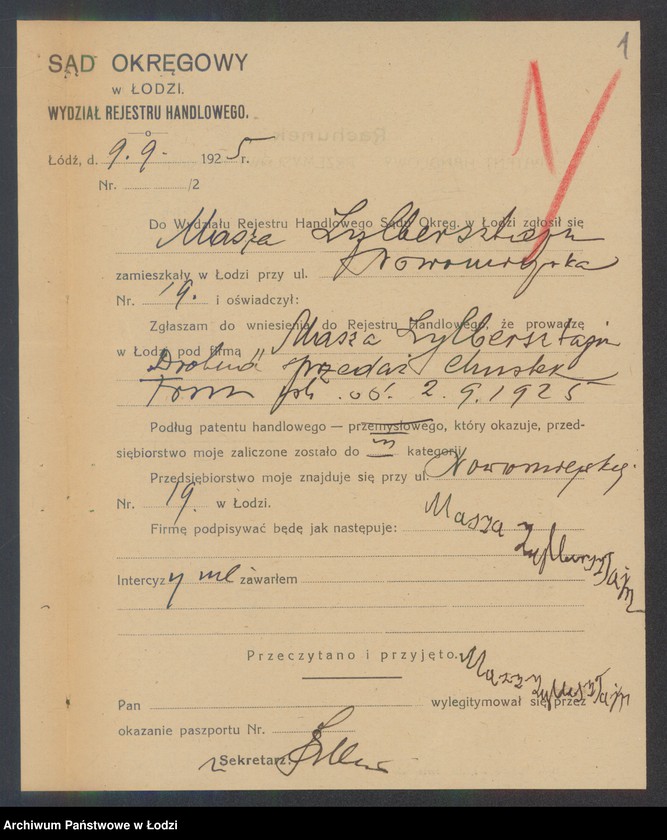 1
SĄD OKRĘGOWY
w ŁODZI,
WYDZIAŁ REJESTRU HANDLOWEGO.
Łódź, d. 9.9. 1925 r.
Nr. /2
Do Wydziału Rejestru Handlowego Sądu Okręg. w Łodzi zgłosił się
Masza Zylbersztajn
zamieszkały w Łodzi przy ul. Nowomiejska
Nr. 19. i oświadczył:
Zgłaszam do wniesienia do Rejestru Handlowego, że prowadzę
w Łodzi pod firmą Masza Zylbersztajn
Drobna sprzedaż Chustek
od 2.9.1925
Podług patentu handlowego — przemysłowego, który okazuje, przed-
siębiorstwo moje zaliczone zostało do kategorji
Przedsiębiorstwo moje znajduje się przy ul. Nowomiejskiej
Nr. 19. w Łodzi.
Firmę podpisywać będę jak następuje: Masza
Zylbersztajn
Intercyzy nie zawarłem
Przeczytano i przyjęto. Masza Zylbersztajn
Pan wylegitymował się przez
okazanie paszportu Nr.
Sekretarz:
Archiwum Państwowe w Łodzi